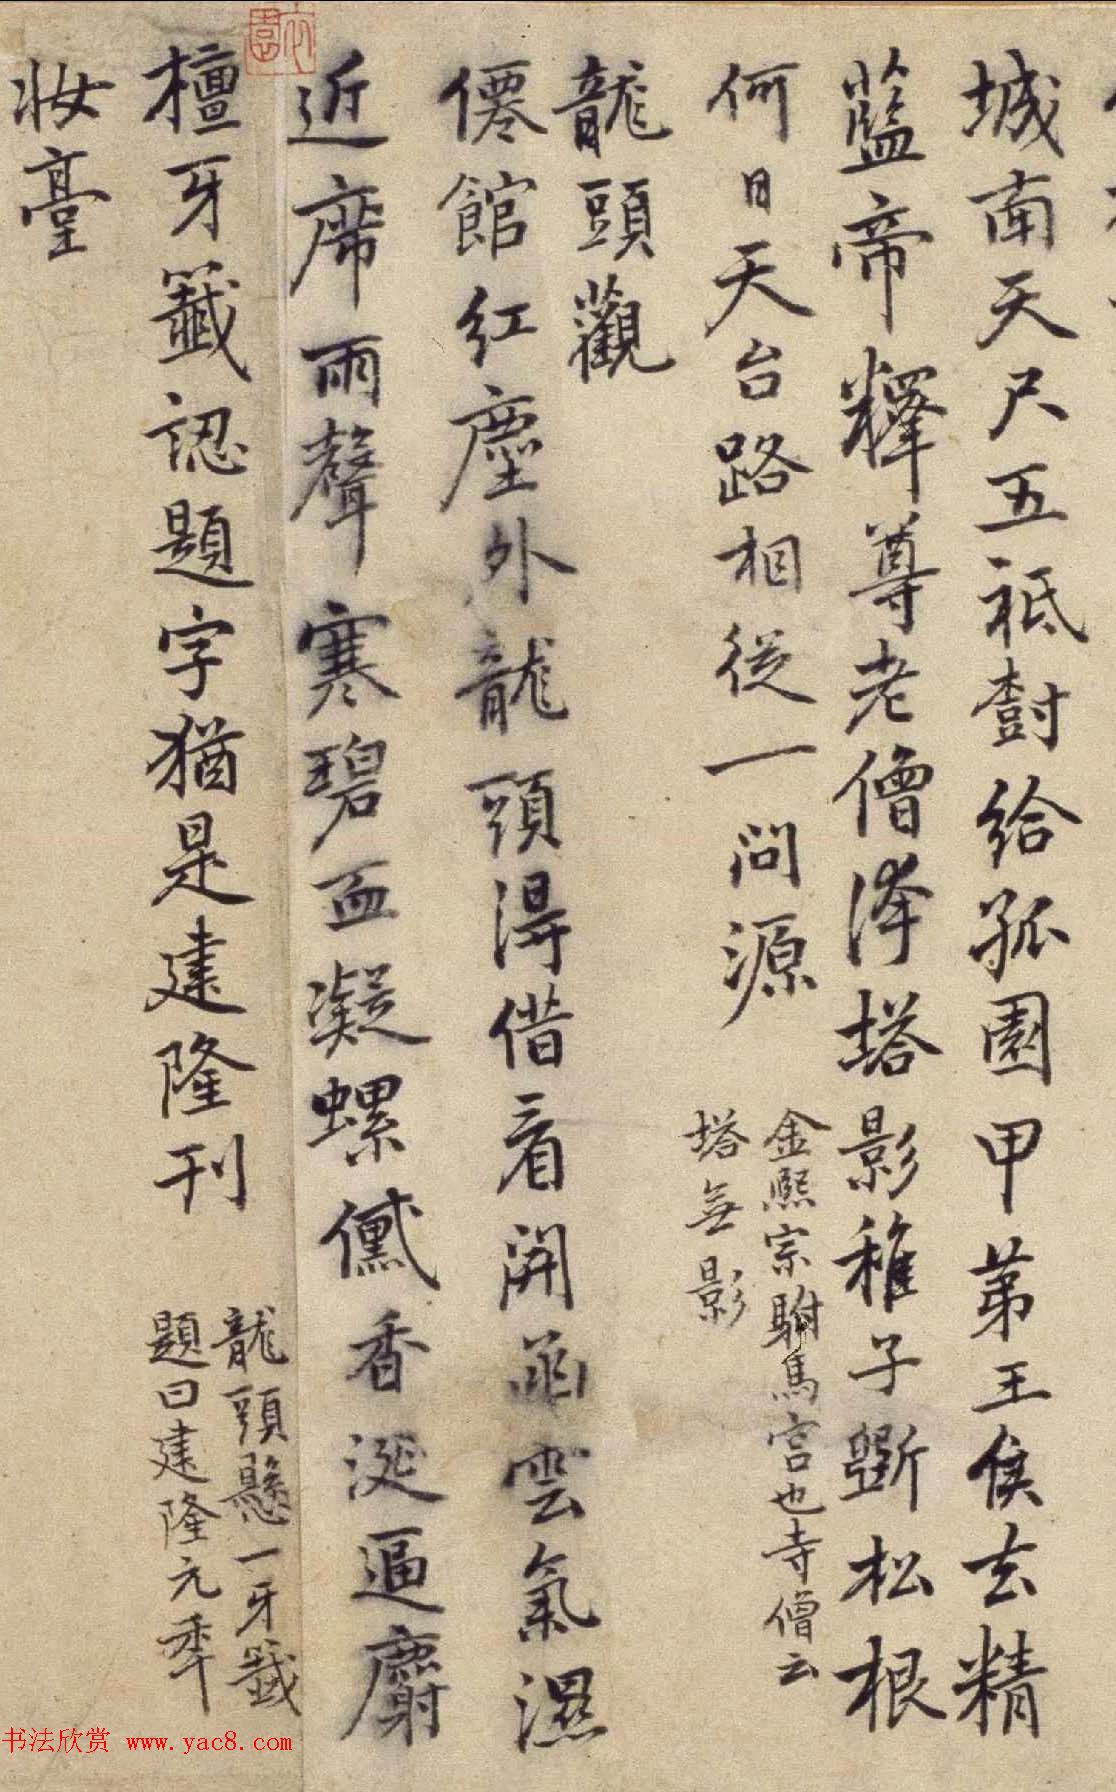 城南天尺五祇樹給孤園甲第王侯去精
藍帝釋尊老僧降塔影稚子斲松根
何日天台路相從一問源
金熙宗駙馬宫也寺僧云
塔無影
龍頭觀
僊館紅塵外龍頭得借看開函雲氣濕
近席雨聲寒碧血凝螺儀香涎逼麝
檀牙籤認題字猶是建隆刊
龍頭懸一牙籤
題曰建隆元年
妝臺
书法欣赏 www.yac8.com